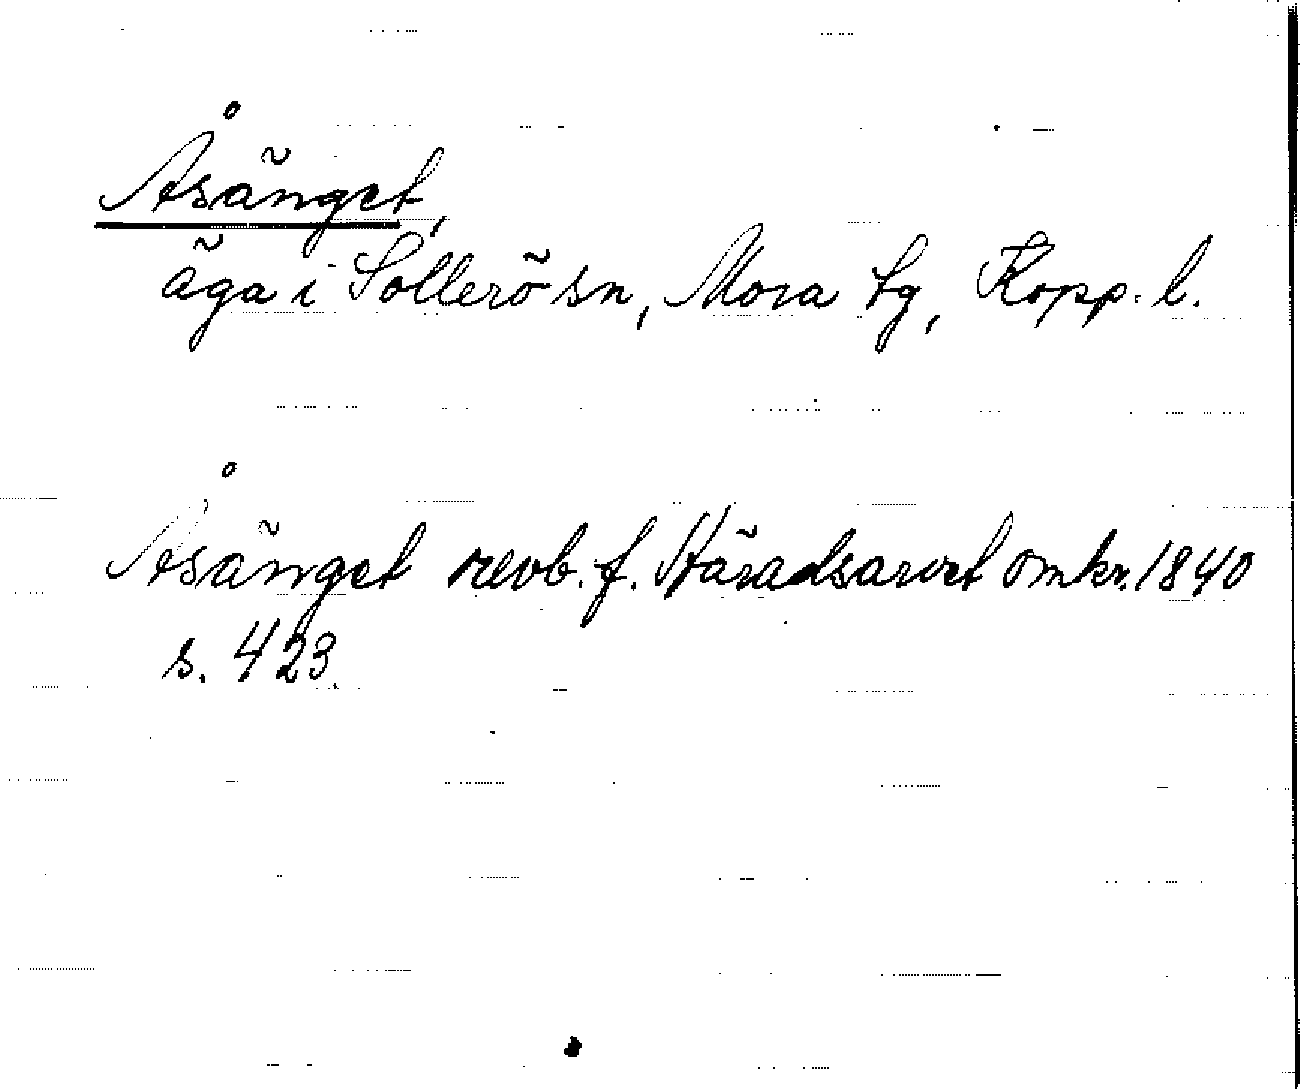 Åsänget,
äga i Sollerö sn, Mora tg, Kopp. l.
Åsänget revb. f. Häradsarvet omkr. 1840
s. 423.